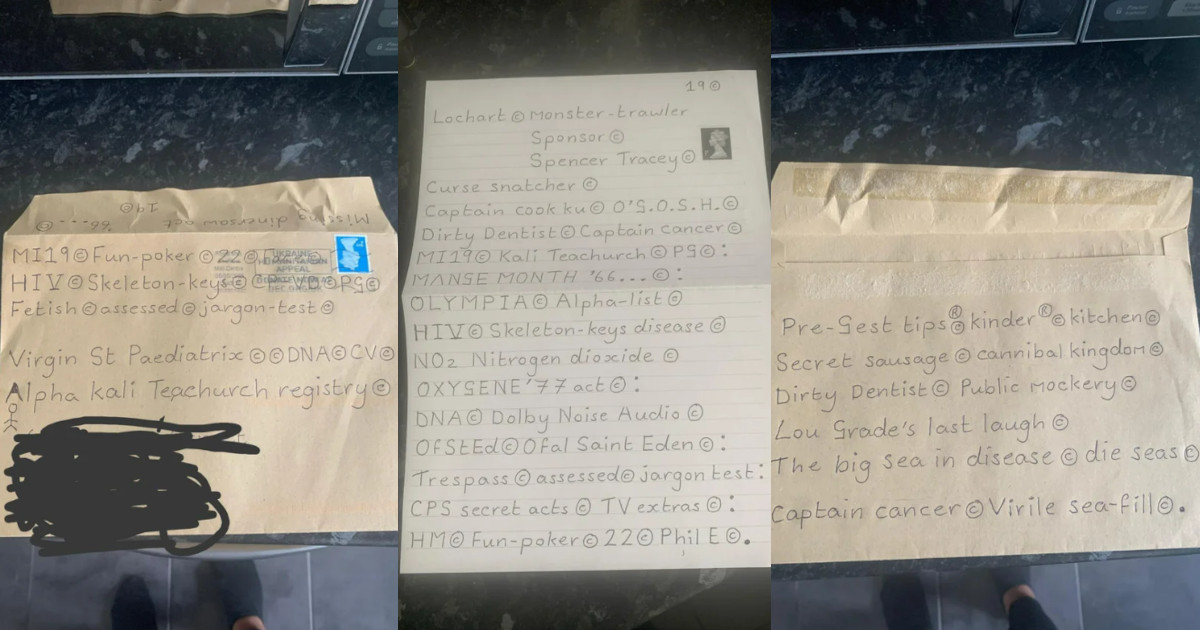 Missing dinersaw act '66....©
19©
MI19©Fun-poker©22©
UKRAINE
HUMANITARIAN
APPEAL
HIV©Skeleton-keys© VD©PG©
Fetish©assessed©jargon-test©
Virgin St Paediatrix©©DNA©CV©
Alpha kali Teachurch registry©
19©
Lochart©Monster-trawler
Sponsor©
Spencer Tracey©
Curse snatcher©
Captain cook ku© O'G.O.S.H.©
Dirty Dentist©Captain cancer©
MI19© Kali Teachurch©PG©:
MANSE MONTH '66...©:
OLYMPIA© Alpha-list©
HIV© Skeleton-keys disease©
NO2 Nitrogen dioxide ©
OXYGENE'77 act©:
DNA© Dolby Noise Audio©
OfStEd©Ofal Saint Eden©:
Trespass©assessed©jargon test:
CPS secret acts© TV extras©:
HM© Fun-poker©22©Phil E©.
Pre-Gest tips®©kinder®©kitchen©
Secret sausage©cannibal kingdom©
Dirty Dentist© Public mockery©
Lou Grade's last laugh©
The big sea in disease©die seas©
Captain cancer©Virile sea-fill©.